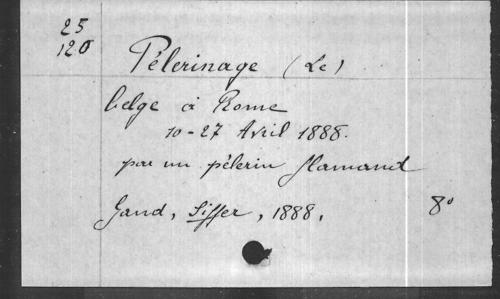 25
120
Pélerinage (Le)
belge à Rome
10-27 Avril 1888.
par un pélerin flamand
Gand, Siffer, 1888, 8°